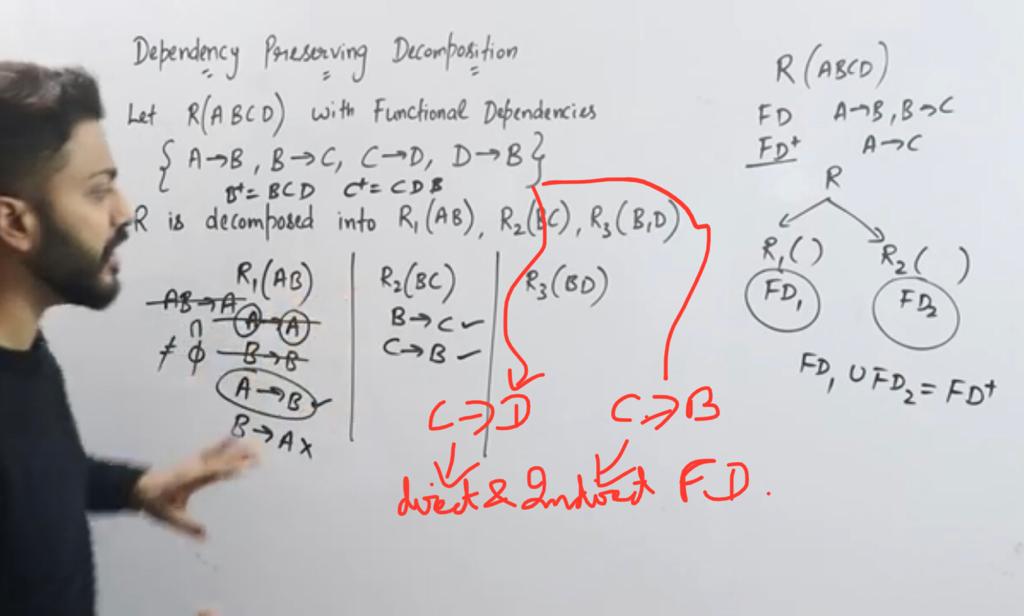 Dependency Preserving Decomposition
Let R(ABCD) with Functional Dependencies
{ A→B, B→C, C→D, D→B }
B⁺ = BCD C⁺ = CDB
R is decomposed into R₁(AB), R₂(BC), R₃(B,D)
R₁(AB)
AB→A
A→A
∩
≠ ϕ
B→B
A→B ✓
B→A ×
R₂(BC)
B→C ✓
C→B ✓
R₃(BD)
C⇒D
C⇒B
direct & Indirect F.D.
R(ABCD)
FD A→B, B→C
FD⁺ A→C
R
R₁( )
R₂( )
FD₁
FD₂
FD₁ ∪ FD₂ = FD⁺